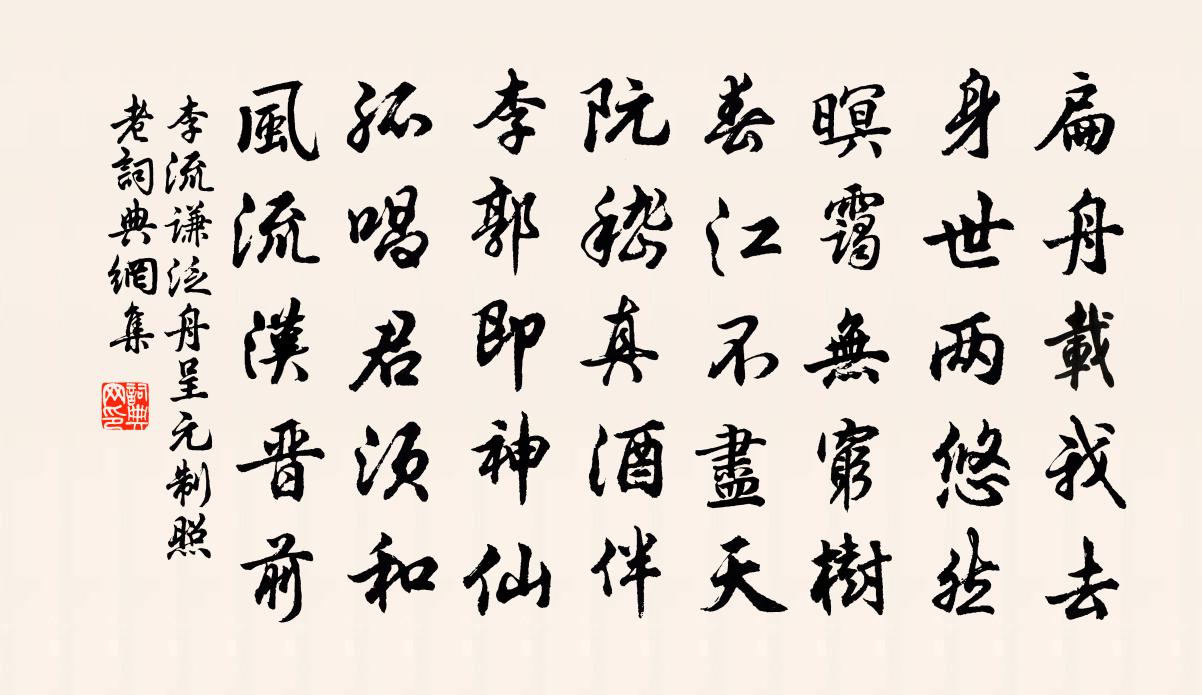 扁舟載我去
身世两悠然
暝靄無窮樹
春江不盡天
阮嵇真酒伴
李郭即神仙
孤唱君須和
風流漢晋前
李流謙泛舟呈元制照
老詞典網集
詞典網印